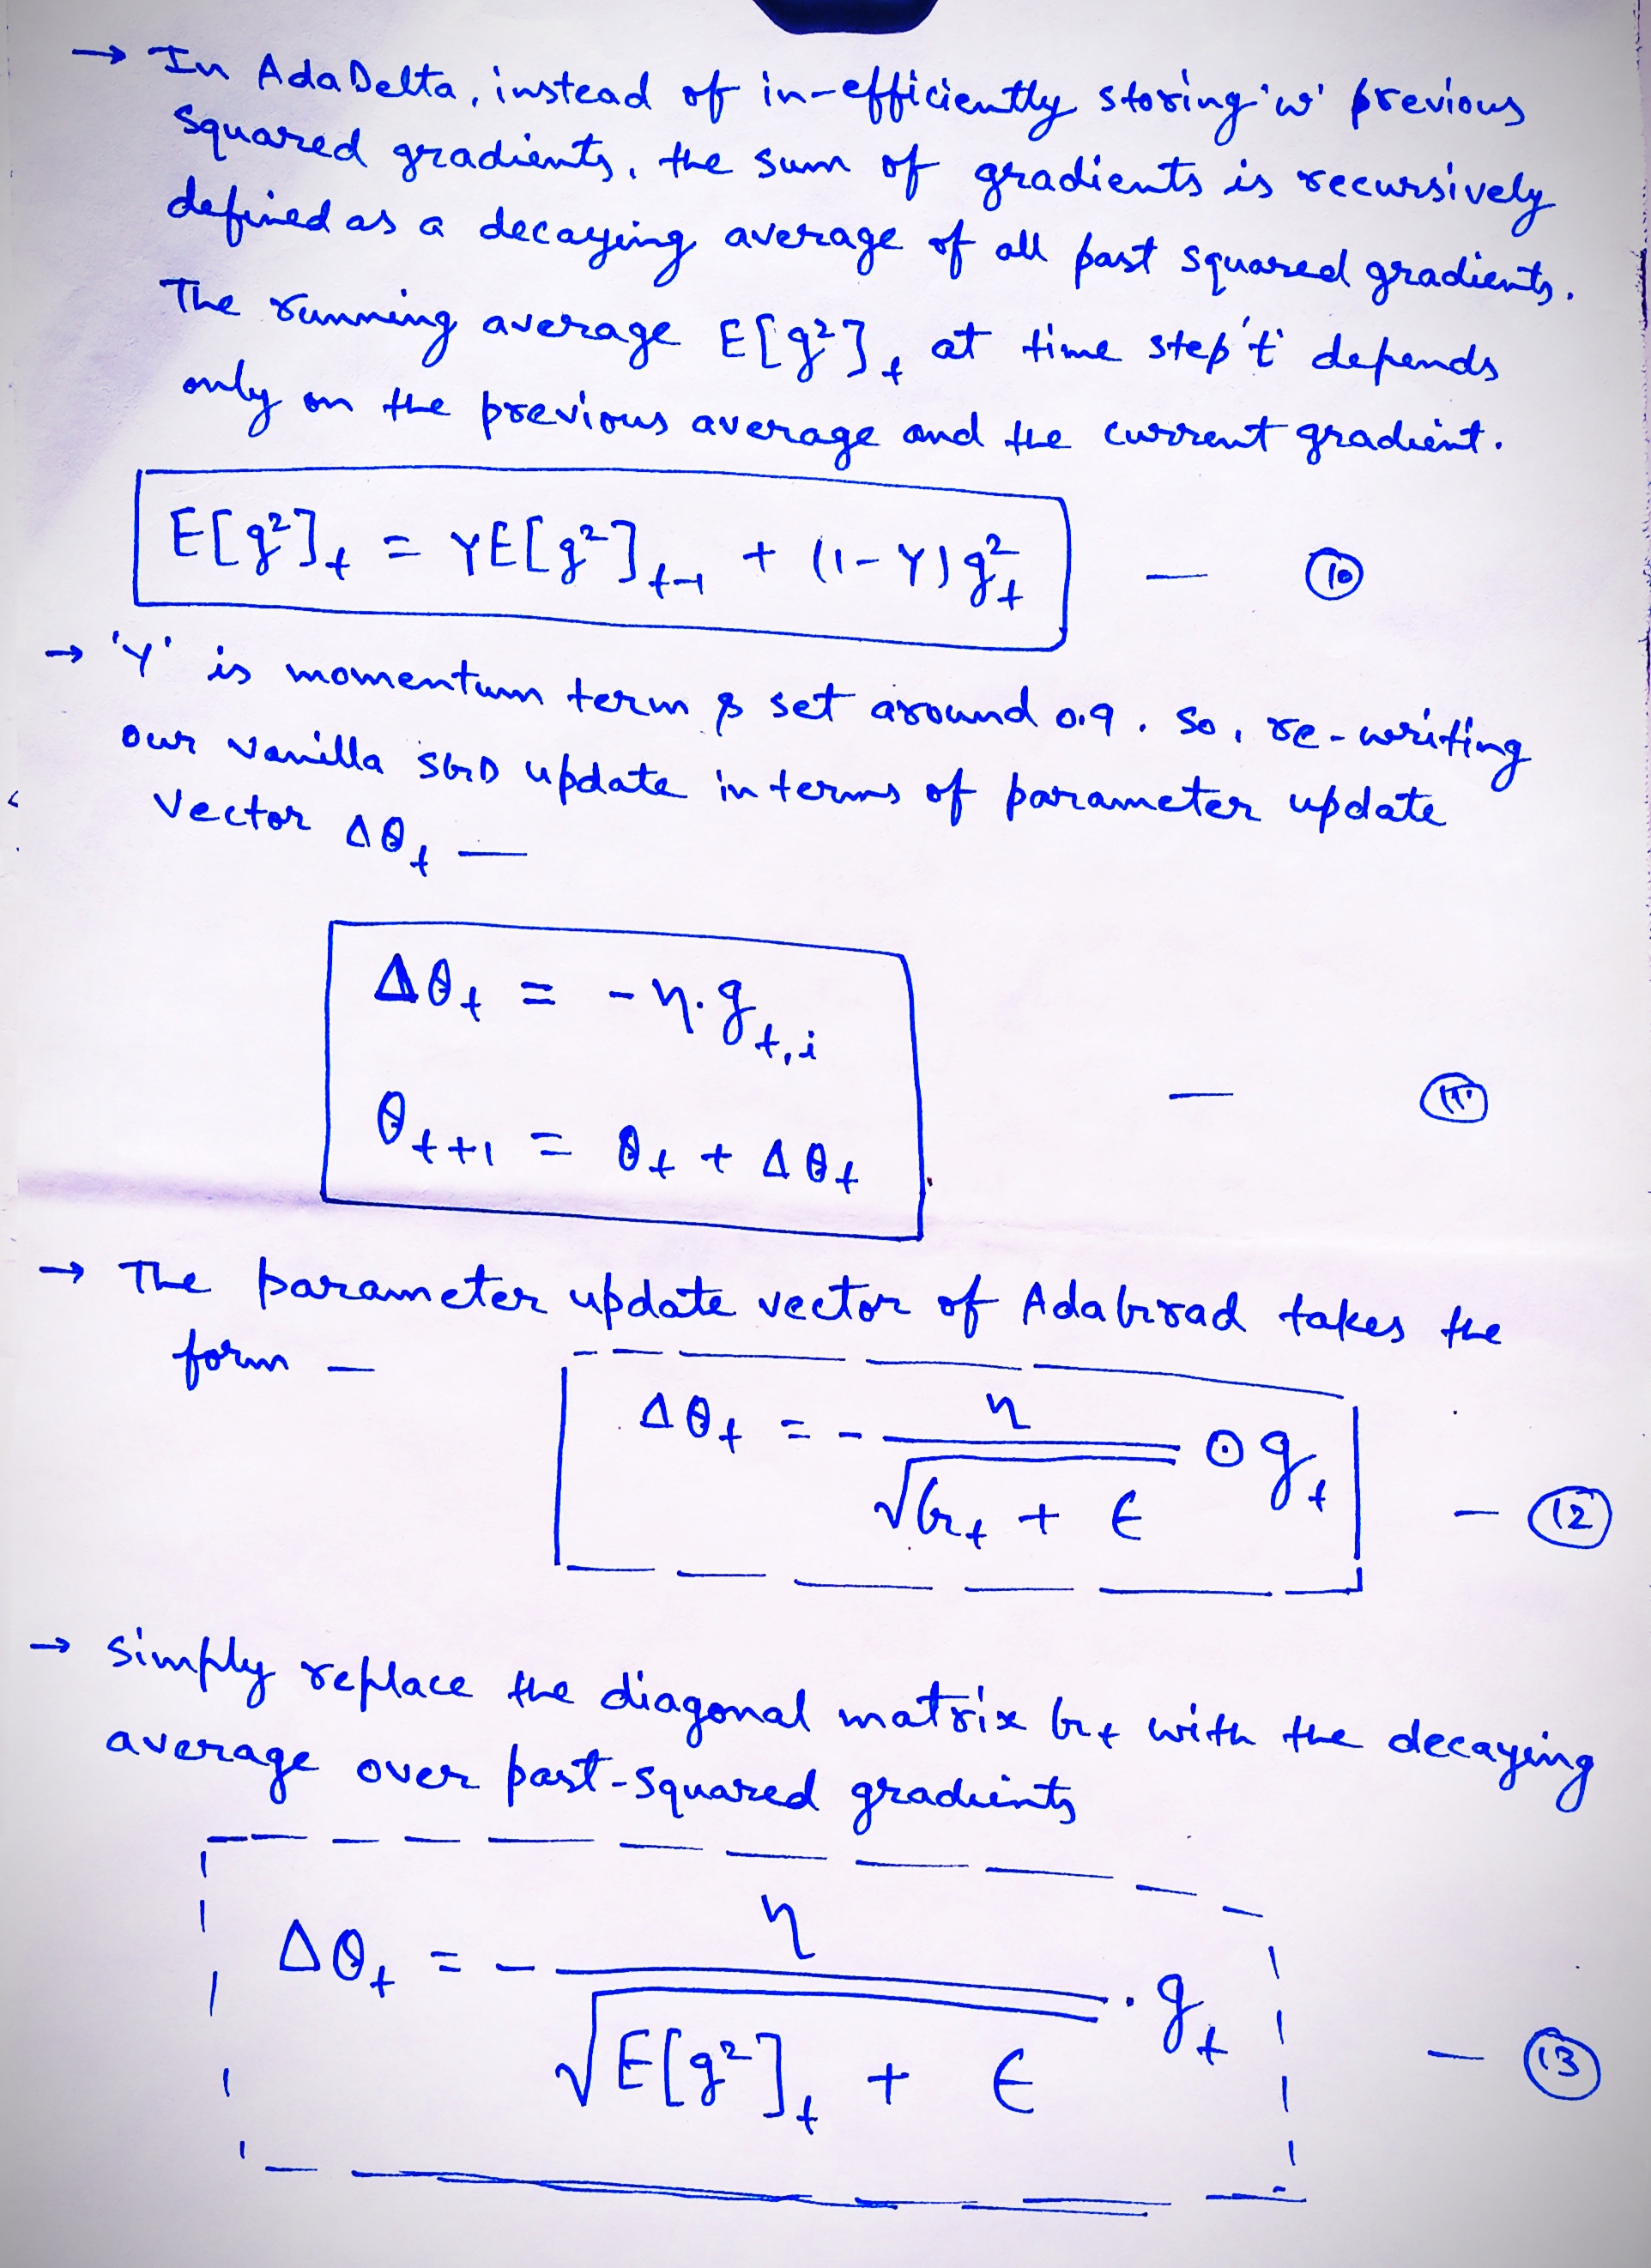 → In AdaDelta, instead of in-efficiently storing 'w' previous
squared gradients, the sum of gradients is recursively
defined as a decaying average of all past squared gradients.
The running average E[g²]ₜ at time step 't' depends
only on the previous average and the current gradient.
E[g²]ₜ = γE[g²]ₜ₋₁ + (1-γ)g²ₜ — (10)
→ 'γ' is momentum term & set around 0.9. So, re-writing
our vanilla SGD update in terms of parameter update
vector Δθₜ —
Δθₜ = -η·g_{t,i}
θₜ₊₁ = θₜ + Δθₜ — (11)
→ The parameter update vector of AdaGrad takes the
form —
Δθₜ = - η / √(Gₜ + ϵ) ⊙ gₜ — (12)
→ Simply replace the diagonal matrix Gₜ with the decaying
average over past-squared gradients
Δθₜ = - η / √(E[g²]ₜ + ϵ) · gₜ — (13)